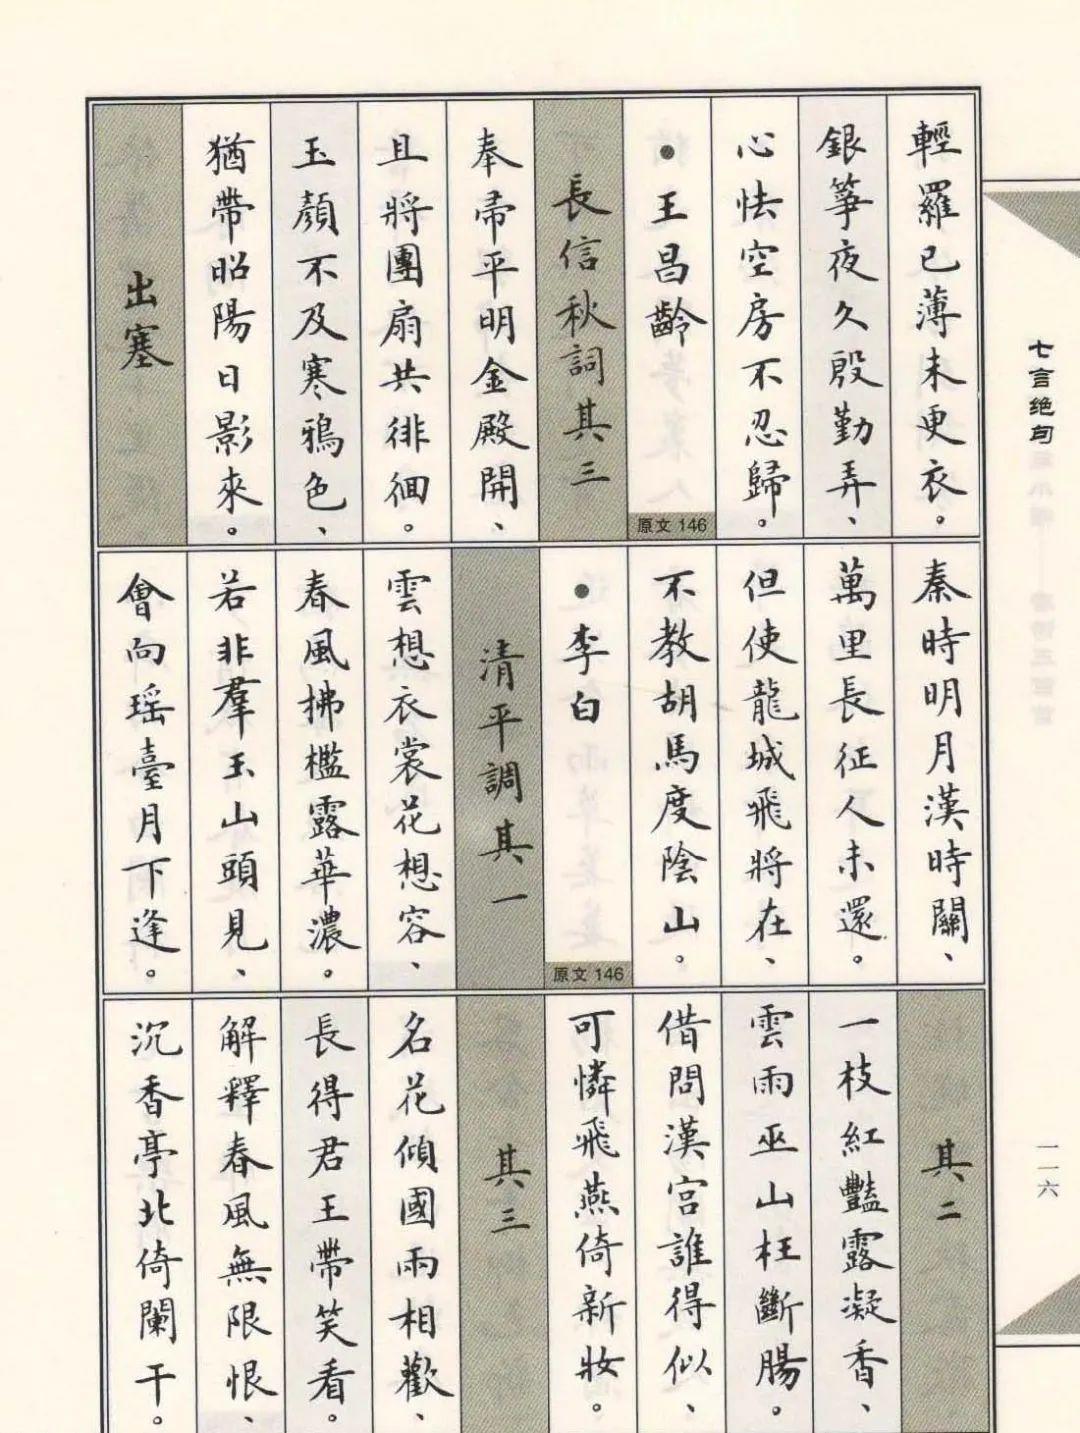 輕羅已薄未更衣。
銀箏夜久殷勤弄、
心怯空房不忍歸。
• 王昌齡
原文 146
長信秋詞其三
奉帚平明金殿開、
且將團扇共徘徊。
玉顏不及寒鴉色、
猶帶昭陽日影來。
出塞
秦時明月漢時關、
萬里長征人未還。
但使龍城飛將在、
不教胡馬度陰山。
• 李白
原文 146
清平調其一
雲想衣裳花想容、
春風拂檻露華濃。
若非羣玉山頭見、
會向瑶臺月下逢。
其二
一枝紅豔露凝香、
雲雨巫山枉斷腸。
借問漢宮誰得似、
可憐飛燕倚新妝。
其三
名花傾國兩相歡、
長得君王帶笑看。
解釋春風無限恨、
沉香亭北倚闌干。
七言绝句
一一六